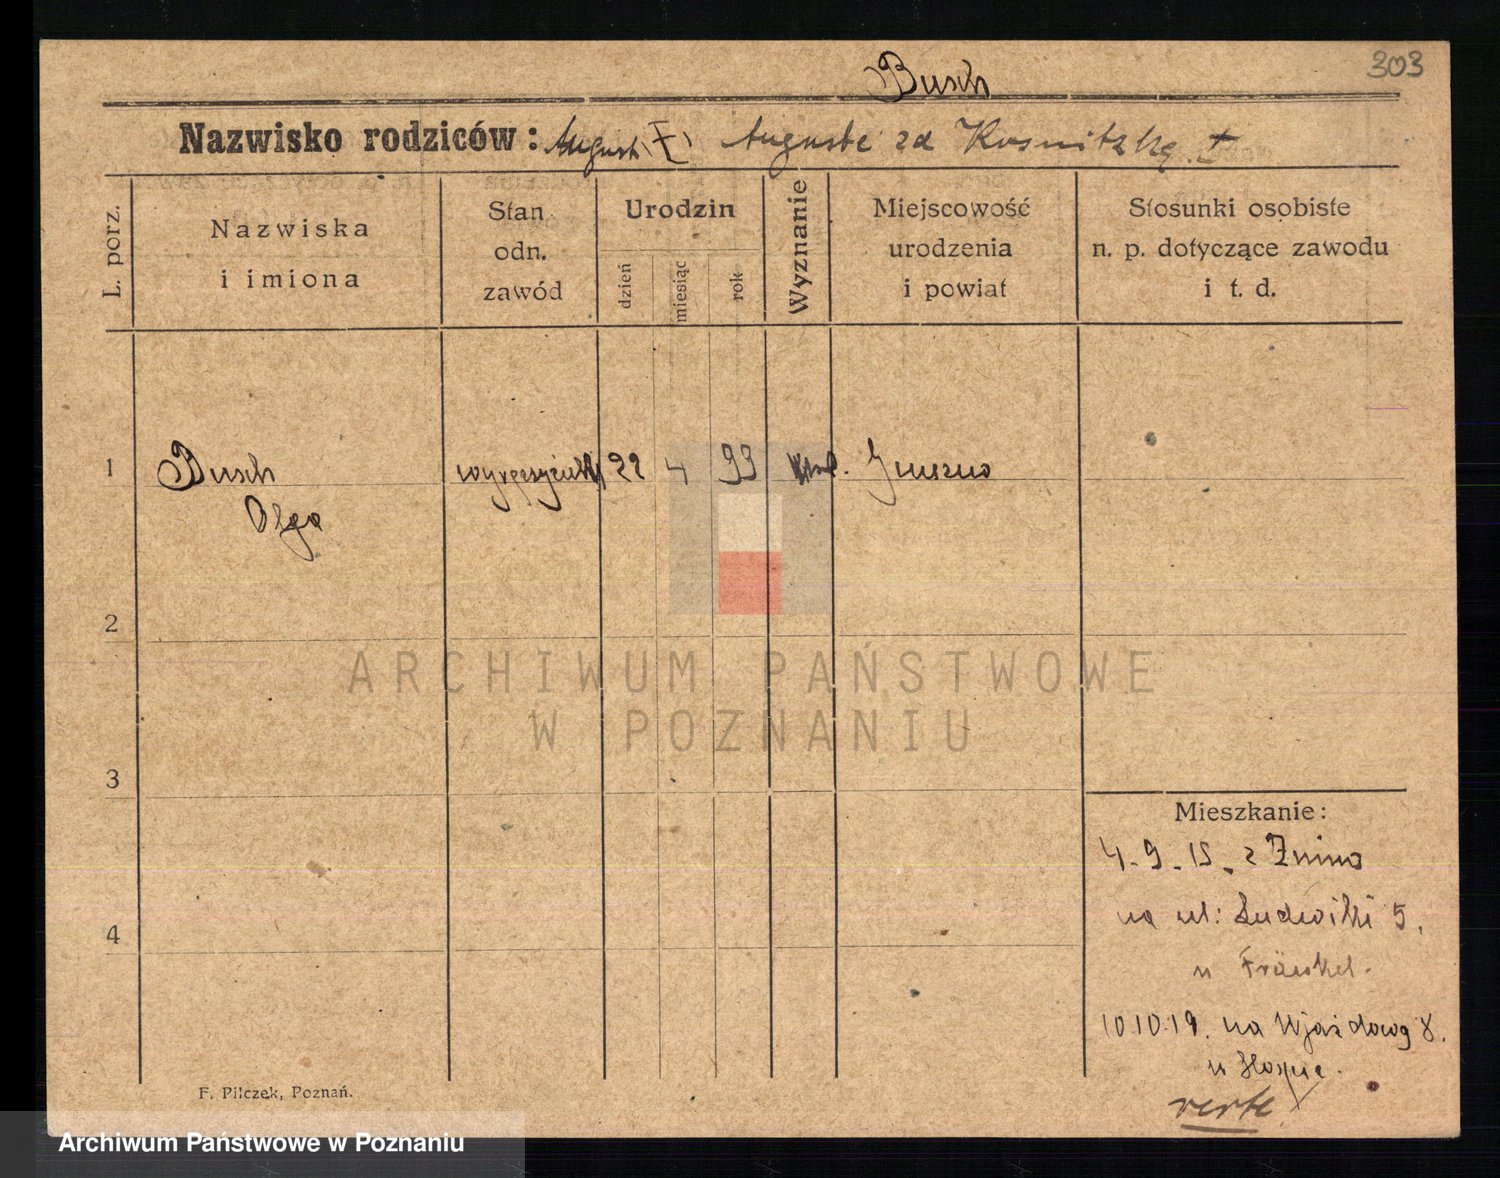 303
Busch
Nazwisko rodziców: August Auguste zd Kosnitzką †
L. porz.
Nazwiska
i imiona
Stan
odn.
zawód
Urodzin
dzień
miesiąc
rok
Wyznanie
Miejscowość
urodzenia
i powiat
Stosunki osobiste
n. p. dotyczące zawodu
i t. d.
1 Busch 22 4 93 Gniezno
Olga
2
3
4
ARCHIWUM PAŃSTWOWE
W POZNANIU
Mieszkanie:
4-9-15- z Żnina
na ul: Ludwiki 5.
u Fränkel.
10.10.19. na Ujazdową 8.
u
verte
F. Pilczek, Poznań.
Archiwum Państwowe w Poznaniu